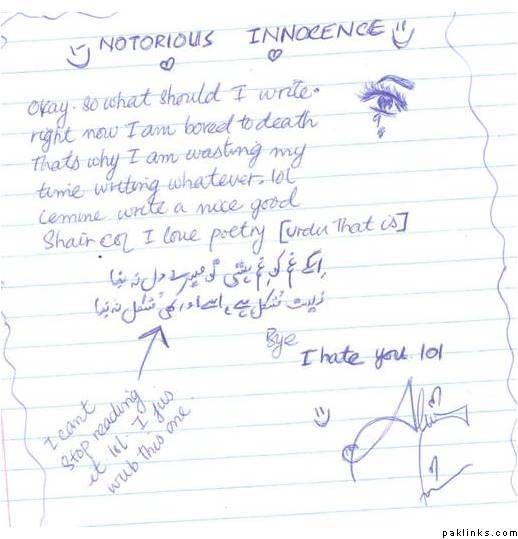 NOTORIOUS INNOCENCE
Okay. So what should I write.
right now I am bored to death
Thats why I am wasting my
time writing whatever. lol
Lemme write a nice good
Shair coz I love poetry [urdu That is]
اسکے غم کو غم ہستی تو میرے دل نہ بنا
زیست مشکل ہے اسے اور بھی مشکل نہ بنا
Bye
I hate you lol
I cant
stop reading
it lol. I jus
wub this one.
paklinks.com